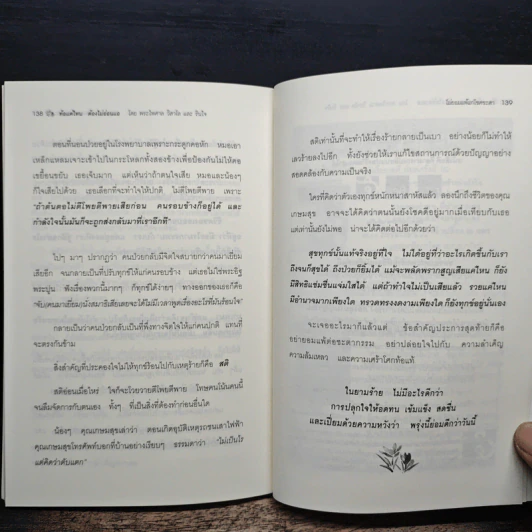 138 ปีย ท้อแค่ไหน ต้องไม่ยอมแพ้ โดย พระไพศาล วิสาโล และ รินใจ
ตอนที่นอนป่วยอยู่ในโรงพยาบาลเพราะกระดูกคอหัก หมอเอา
เหล็กแหลมเจาะเข้าไปในกระโหลกทั้งสองข้างเพื่อป้องกันไม่ให้คอ
เขยื้อนขยับ เธอเจ็บมาก แต่เห็นว่าถ้าตนใจเสีย หมอและน้องๆ
ก็ใจเสียไปด้วย เธอเลือกที่จะทำใจให้ปกติ ไม่ตีโพยตีพาย เพราะ
"ถ้าต้นตอไม่ตีโพยตีพายเสียก่อน คนรอบข้างก็อยู่ได้ และ
กำลังใจนั้นมันก็จะถูกส่งกลับมาที่เราอีกที"
ไปๆ มาๆ ปรากฏว่า คนป่วยกลับมีจิตใจสบายกว่าคนมาเยี่ยม
เสียอีก จนกลายเป็นที่ปรับทุกข์ให้แก่คนรอบข้าง แต่เธอไม่ใช่พระอิฐ
พระปูน ฟังเรื่องพวกนี้มากๆ ก็ทุกข์ได้ง่ายๆ ทางออกของเธอก็คือ
กลายเป็นว่าคนป่วยกลับเป็นที่พึ่งทางจิตใจให้แก่คนปกติ แทนที่
จะตรงกันข้าม
สิ่งสำคัญที่ประคองใจไม่ให้ทุกข์ร้อนไปกับเหตุร้ายก็คือ สติ
สติอ่อนเมื่อไหร่ ใจก็จะโวยวายตีโพยตีพาย โทษคนโน้นคนนี้
จนลืมจัดการกับตนเอง ทั้งๆ ที่เป็นสิ่งที่ต้องทำก่อนอื่นใด
น้องๆ คุณเกษมสุขเล่าว่า ตอนเกิดอุบัติเหตุรถชนเสาไฟฟ้า
คุณเกษมสุขโทรศัพท์บอกที่บ้านอย่างเรียบๆ ธรรมดาว่า "ไม่เป็นไร
แค่คิดว่าคันแตก"
139
สติเท่านั้นที่จะทำให้เรื่องร้ายกลายเป็นเบา อย่างน้อยก็ไม่ทำให้
เลวร้ายลงไปอีก ทั้งยังช่วยให้เราแก้ไขสถานการณ์ด้วยปัญญาอย่าง
สอดคล้องกับความเป็นจริง
ใครที่คิดว่าตัวเองทุกข์หนักหนาสาหัสแล้ว ลองนึกถึงชีวิตของคุณ
เกษมสุข อาจจะได้คิดว่าตนนั้นยังโชคดีอยู่มากเมื่อเทียบกับเธอ
แต่เท่านั้นยังไม่พอ น่าจะได้คิดต่อไปอีกด้วยว่า
สุขทุกข์นั้นแท้จริงอยู่ที่ใจ ไม่ได้อยู่ที่ว่าอะไรเกิดขึ้นกับเรา
ถึงจนก็สุขได้ ถึงป่วยก็ยิ้มได้ แม้จะพลัดพรากสูญเสียแค่ไหน ก็ยัง
มีสิทธิแช่มชื่นแจ่มใสได้ แต่ถ้าทำใจไม่เป็นเสียแล้ว รวยแค่ไหน
มีอำนาจมากเพียงใด ทรวดทรงงดงามเพียงใด ก็ยังทุกข์อยู่นั่นเอง
จะเจออะไรมาก็แล้วแต่ ข้อสำคัญประการสุดท้ายก็คือ
อย่ายอมแพ้ต่อชะตากรรม อย่าปล่อยใจไปกับ ความลำเค็ญ
ความล้มเหลว และความเศร้าโศกท้อแท้
ในยามร้าย ไม่มีอะไรดีกว่า
การปลุกใจให้อดทน เข้มแข็ง สดชื่น
และเปี่ยมด้วยความหวังว่า พรุ่งนี้ย่อมดีกว่าวันนี้